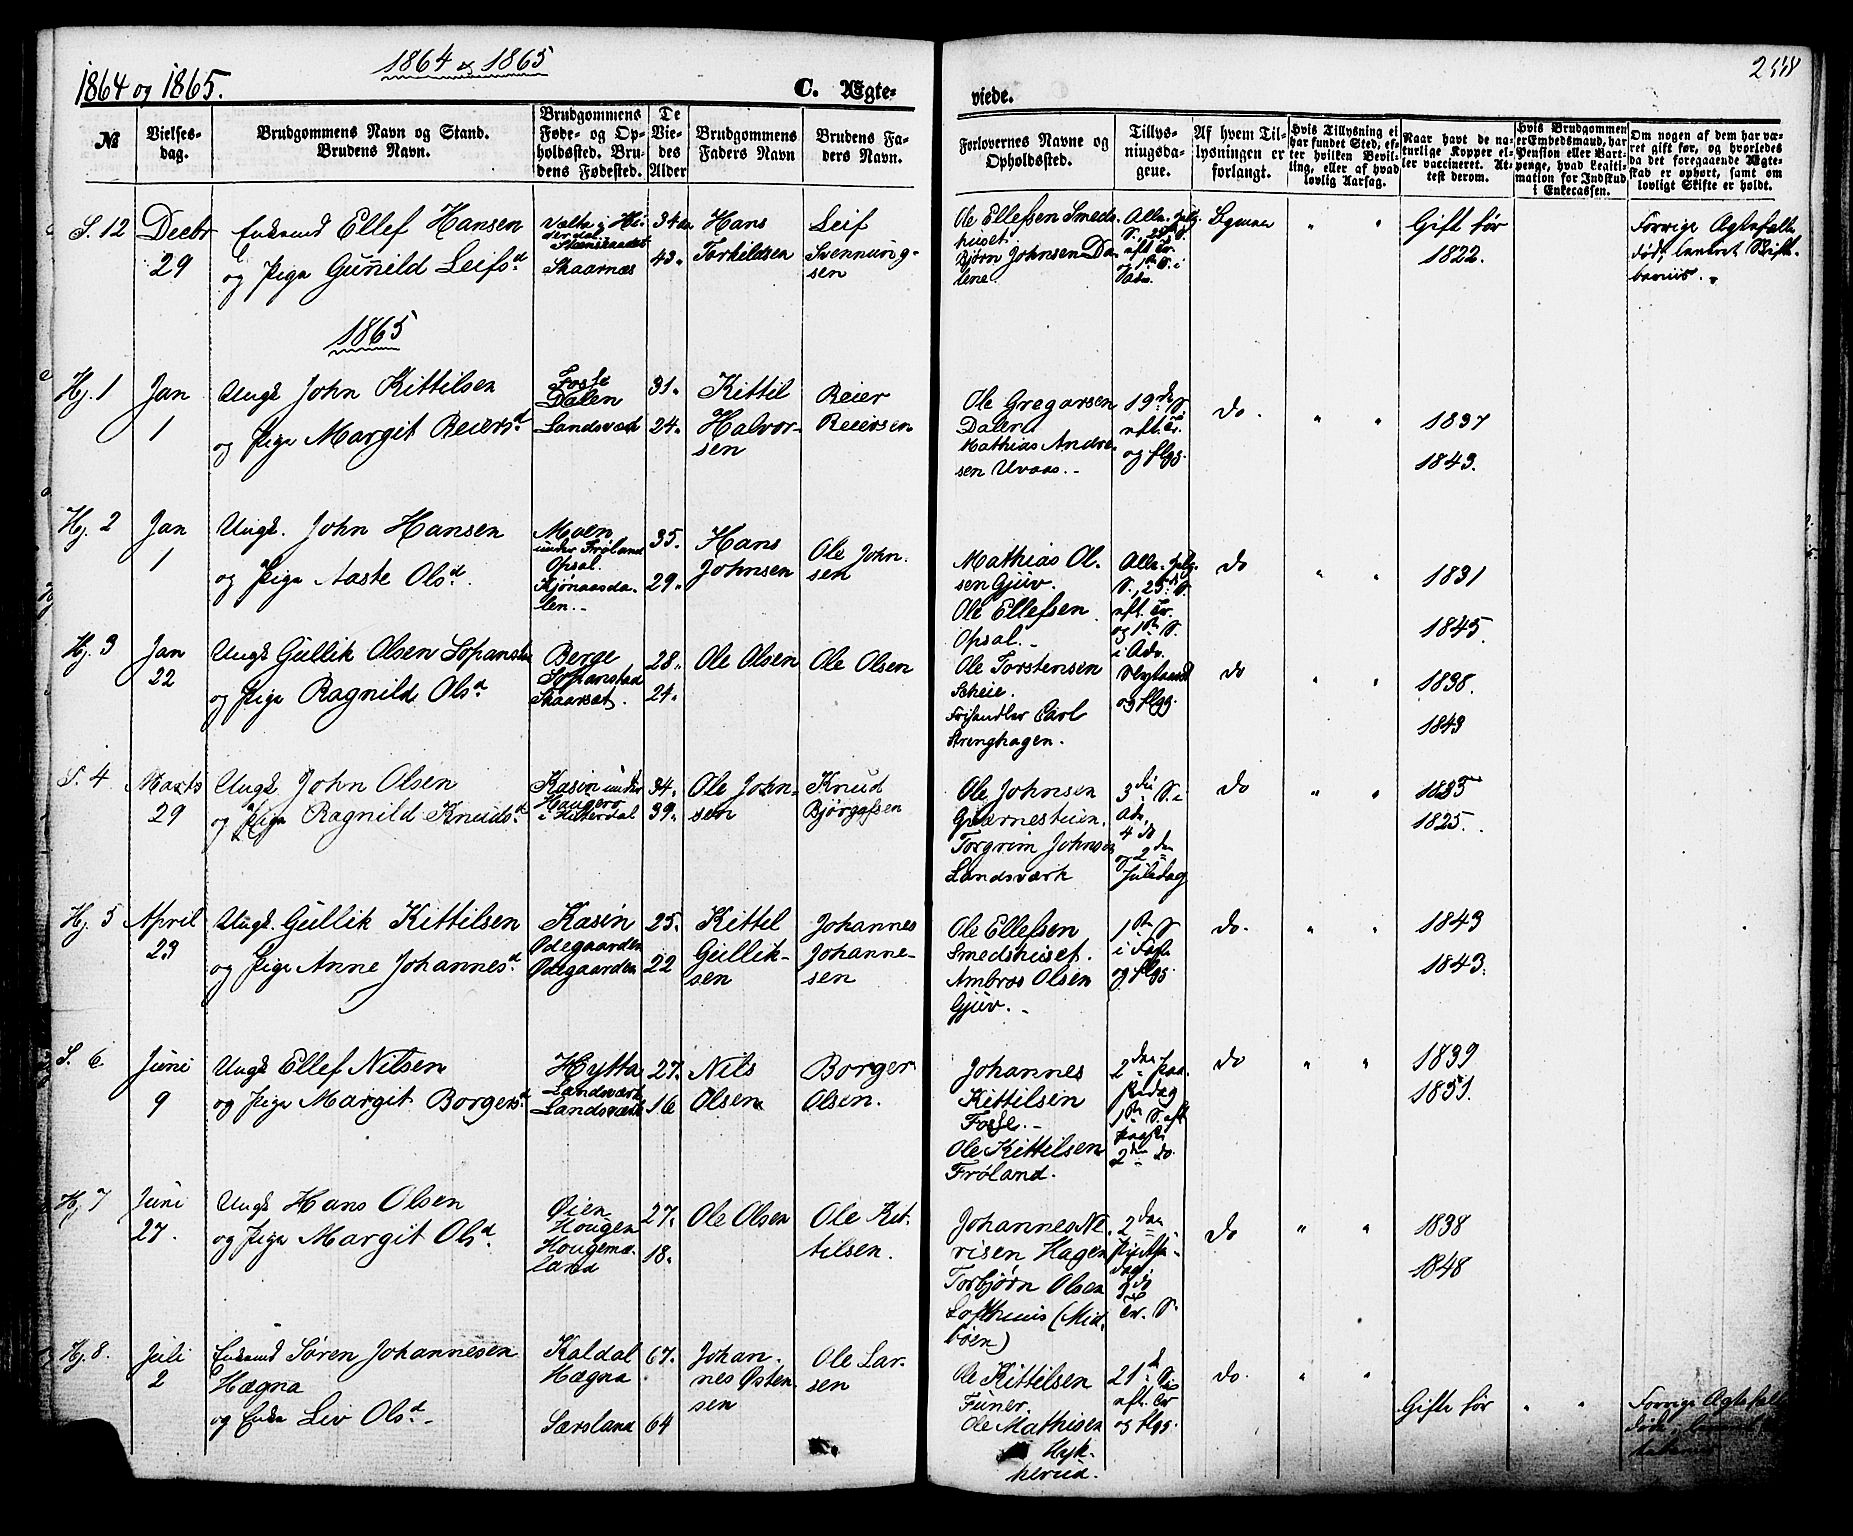 1864 og 1865.
1864 & 1865
C. Ægte-
viede.
№
Vielses-
dag.
Brudgommens Navn og Stand.
Brudens Navn.
Brudgommens
Føde- og Op-
holdssted. Bru-
dens Fødested.
De
Vie-
des
Alder
Brudgommens
Faders Navn
Brudens Fa-
ders Navn.
Forlovernes Navne og
Opholdssted.
Tillys-
ningsda-
gene.
Af hvem Til-
lysningen er
forlangt.
Hvis Tillysning ei
har fundet Sted, ef-
ter hvilken Bevil-
ling, eller af hvad
lovlig Aarsag.
Naar havt de na-
turlige Kopper el-
ler vaccineret. At-
test derom.
Hvis Brudgommen
er Embedsmand, har
Pension eller Vart-
penge, hvad Legiti-
mation for Indskud
i Enkecassen.
Om nogen af dem har væ-
ret gift før, og hvorledes
da det foregaaende Ægte-
skab er ophørt, samt om
lovligt Skifte er holdt.
S. 12
Decbr
29
Enkemd Ellef Hansen
og Pige Gunild Leifsd
Skaarnæs
34
43.
Hans
Torkildsen
Leif
Svennung-
sen
Ole Ellefsen Smeds-
huset.
Bjørn Johnsen Da-
lene.
Gift før
1822.
Forrige Ægtefælle
død,
1865
Hj. 1
Jan
1
Ungk John Kittilsen
og Pige Margit Reiersd
Fosse
Dalen
Landsværk
31.
24.
Kittil
Halvor-
sen
Reier
Reiersen
Ole Gregarsen
Dalen
Mathias Andre-
sen Uvaas.-
19de S.
eft. Tr.
og flgg.
do.
" "
1837
1843.
Hj. 2
Jan
1
Ungk. John Hansen
og Pige Aaste Olsd.
Moen
under Frøland
Opsal.
Kjønaasda-
len.-
35.
29.
Hans
Johnsen
Ole John-
sen
Mathias Ol-
sen Gjuv.
Ole Ellefsen
Opsal.-
eft. Tr.
og 1ste S.
i Adv.
do
" "
1831
1845.
Hj. 3
Jan
22
Ungk Gullik Olsen Sopanstad
og Pige Ragnild Olsd
Berge
Sopanstad
Skaarsæt.
28.
24.
Ole Olsen
Ole Olsen
Ole Torstensen
Scheie.
Carl
Strenghagen.
og flgg.
do
" "
1838.
1843
S. 4
Marts
29
Ungk. John Olsen
og Pige Ragnild Knudsd.
Kasin under
Haugero
i Hitterdal
34.
39.
Ole John-
sen
Knud
Bjørgufsen
Ole Johnsen
Torgrim Johnsen
Landsværk
3die S. i
Adv.
4 do
og 2den
Juledag
do
" "
1835
1825.
Hj. 5
April
23
Ungk. Gullik Kittilsen
og Pige Anne Johannesd.
Kasin
Ødegaarden
Ødegaarden
25.
22
Kittel
Gullik-
sen
Johannes
Johanne-
sen
Ole Ellefsen
Smedshuset.
Ambros Olsen
Gjuv.-
1ste S
i Faste
og flgg.
do.
" "
1843
1843.
S. 6
Juni
9
Ungk Ellef Nilsen
og Pige Margit Borgersd
Hytta
Landsværk
Landsværk
27.
16
Nils
Olsen
Borger
Olsen.
Johannes
Kittilsen
Fosse.-
Ole Kittilsen
Frøland.
2den Paa-
skedag
1ste S. eft
Paaske
2den do.
do
" "
1839
1851.
Hj. 7
Juni
27.
Ungk Hans Olsen
og Pige Margit Olsd.
Øien
Hougen
Hougemæ-
land
27.
18.
Ole Olsen
Ole Kit-
tilsen.
Johannes Ni-
risen Hagen
Torbjørn Olsen
Lofthuus (Mid-
bøen)
2den
Pintse-
dag
Tr. S.
do
" "
1838
1848
Hj. 8.
Juli
2
Enkemd Søren Johannesen
Hægna
og Enke Liv Olsd.-
Kaldal
Hægna
Særsland
67.
64
Johan-
nes Østen-
sen
Ole Lar-
sen
Ole Kittilsen
Funer.
Ole Mathisen
Hyk-
kerud.
21de S.
eft. Tr
og flgg.
do.
" "
Gifte før
" "
Forrige Ægtefælle